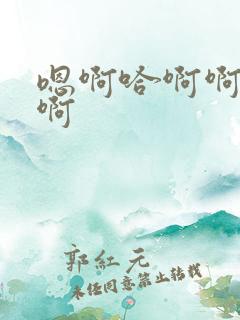 嗯啊哈啊啊
啊
郭紅元
未经同意禁止转载